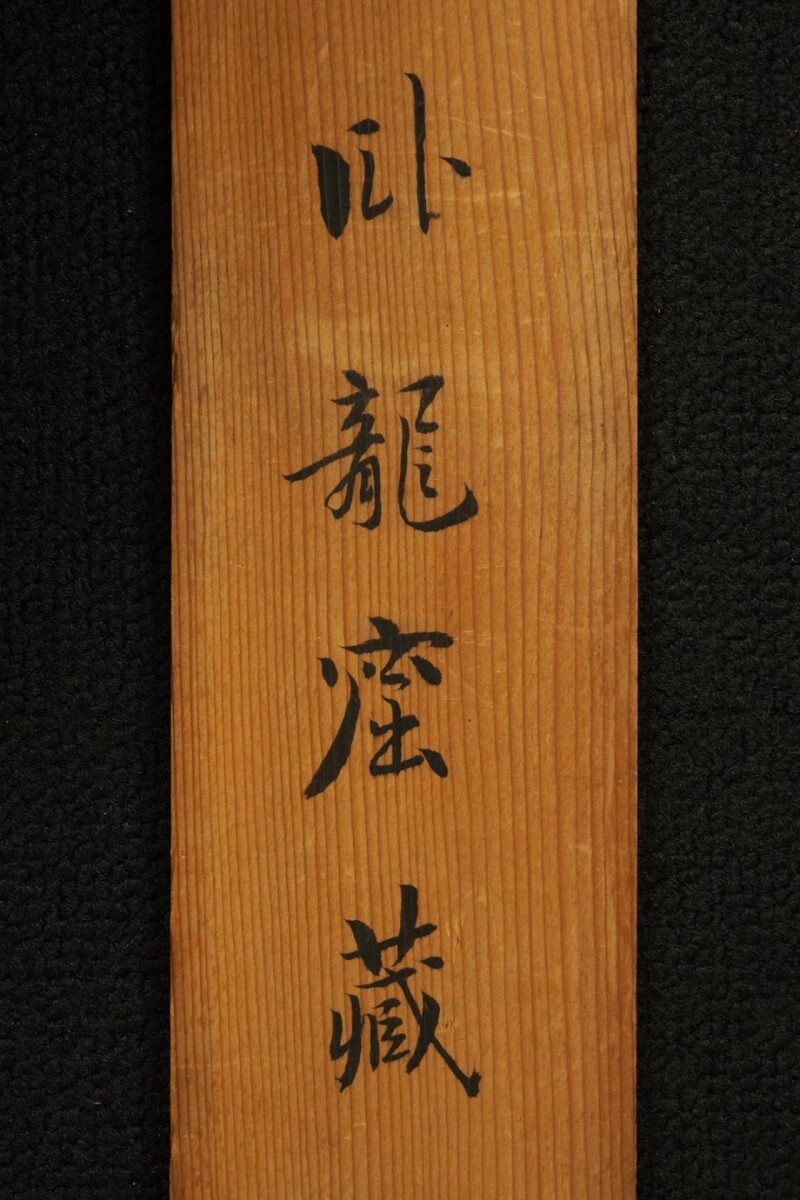 臥龍窟藏